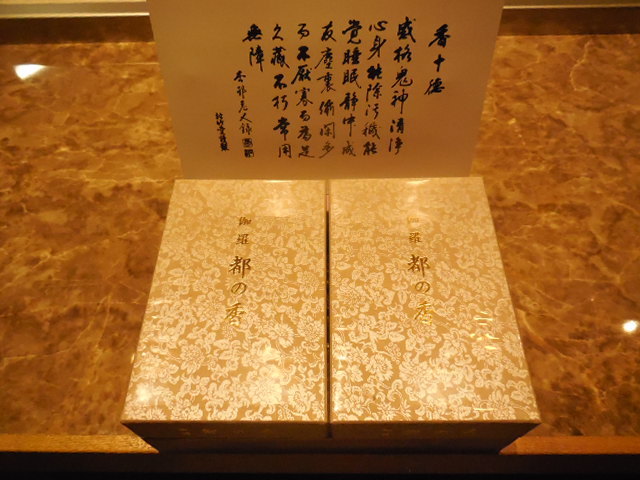 香十徳
感格鬼神清浄
心身能除汚穢能
覚睡眠静中成
友塵裏偸閑多
而不厭寡而為足
久蔵不朽常用
無障
伽羅
都の香
伽羅
都の香